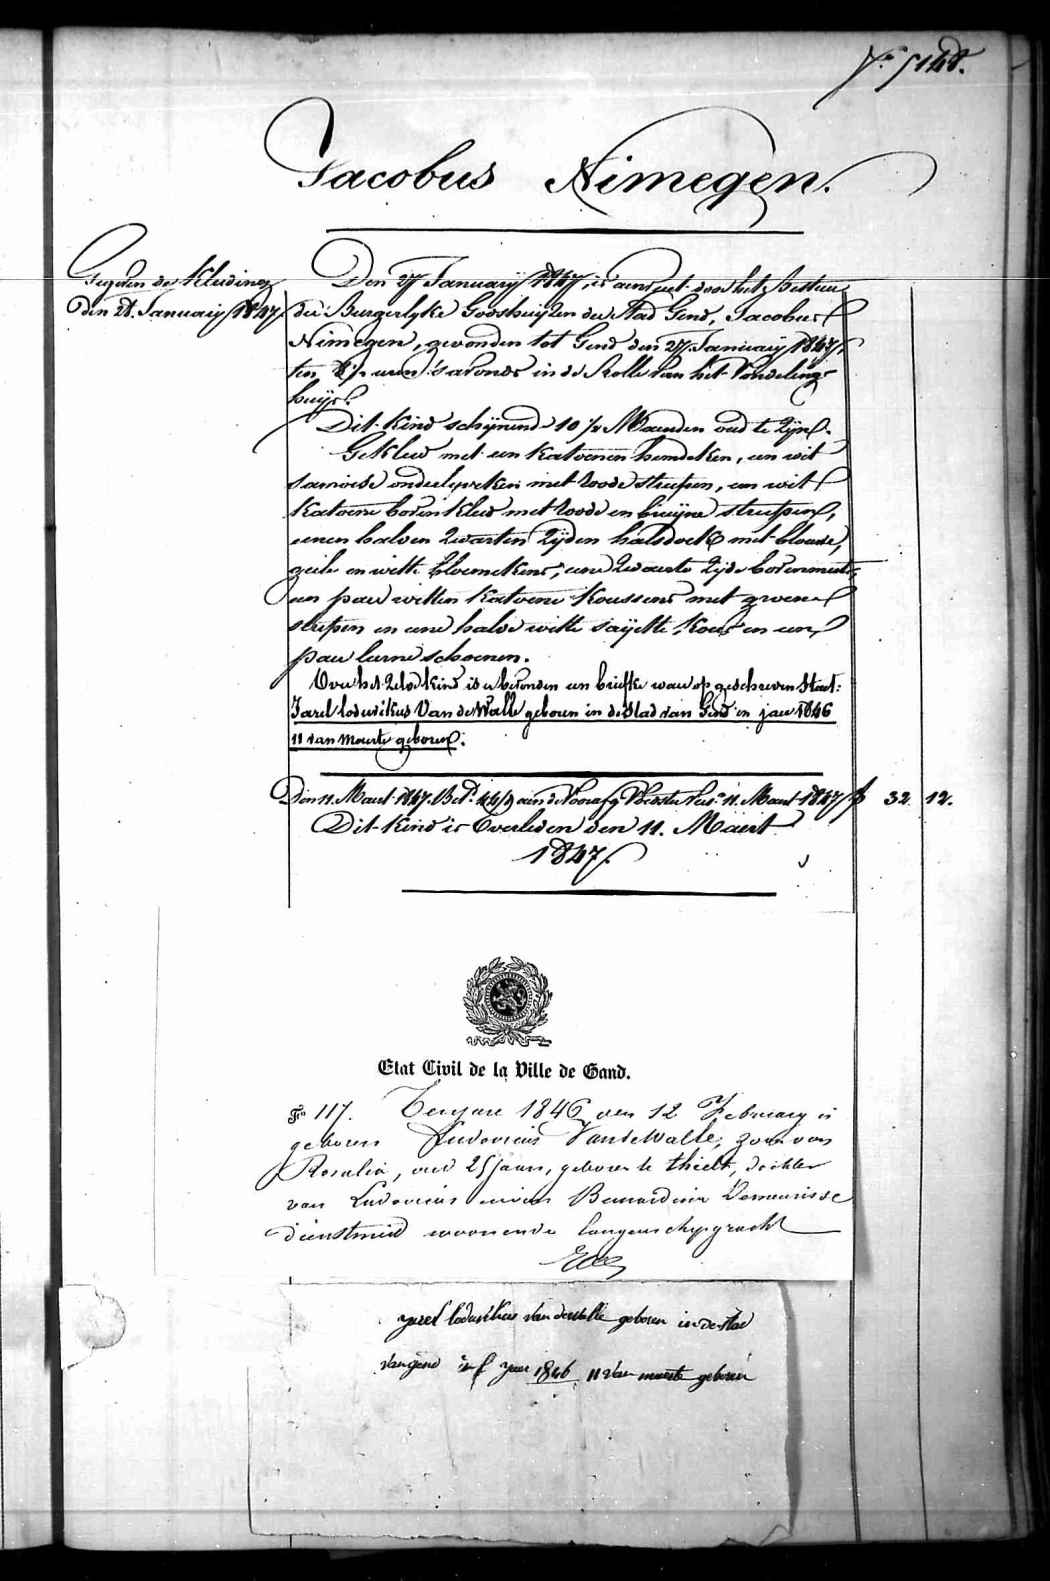 N.° 5148.
Jacobus Nimegen.
Gegeven de Kleeding
den 28. January 1847.
Den 27 January 1847, is aenveert door het Bestuer
der Burgerlyke Godshuyzen der Stad Gend, Jacobus
Nimegen, gevonden tot Gend den 27 January 1847,
ten uren 's avonds in de Rolle van het Vondelings
huys.
Dit Kind schynende 10 Maenden oud te zyn.
Gekleed met een katoenen hemdeken, een wit
onderlyveken met roode streepen, een wit
katoene bovenkleed met roode en bruyne streepen,
eenen halven zwarten zyden halsdoek met blauwe,
geele en witte bloemekens, eene zwarte zyde bovenmuts,
een paer witten katoene koussens met groene
streepen en eene halve witte sayette kous en een
paer leerne schoenen.
Over het zelve kind is er bevonden een briefke waer op geschreven staet:
Jarel lodewikus Van de Walle geboren in de Stad van Gend in jaer 1846
11 van meerte geboren.
Den 11. Maert 1847. Bet. aen de Voorsz. 11. Maert 1847 f 32 12.
Dit Kind is Overleden den 11. Maert
1847.
Etat Civil de la Ville de Gand.
F° 117. Ten jare 1846 den 12 February is
geboren Ludovicus Van de Walle, zoon van
Rosalia, oud 25 jaren, geboren te thielt, dochter
van Ludovicus en van Bernardina Demeurisse
dienstmeid woonende langeuschipgracht
jarel lodewikus van de walle geboren in de stad
van gend in f jaer 1846 11 van meerte geboren